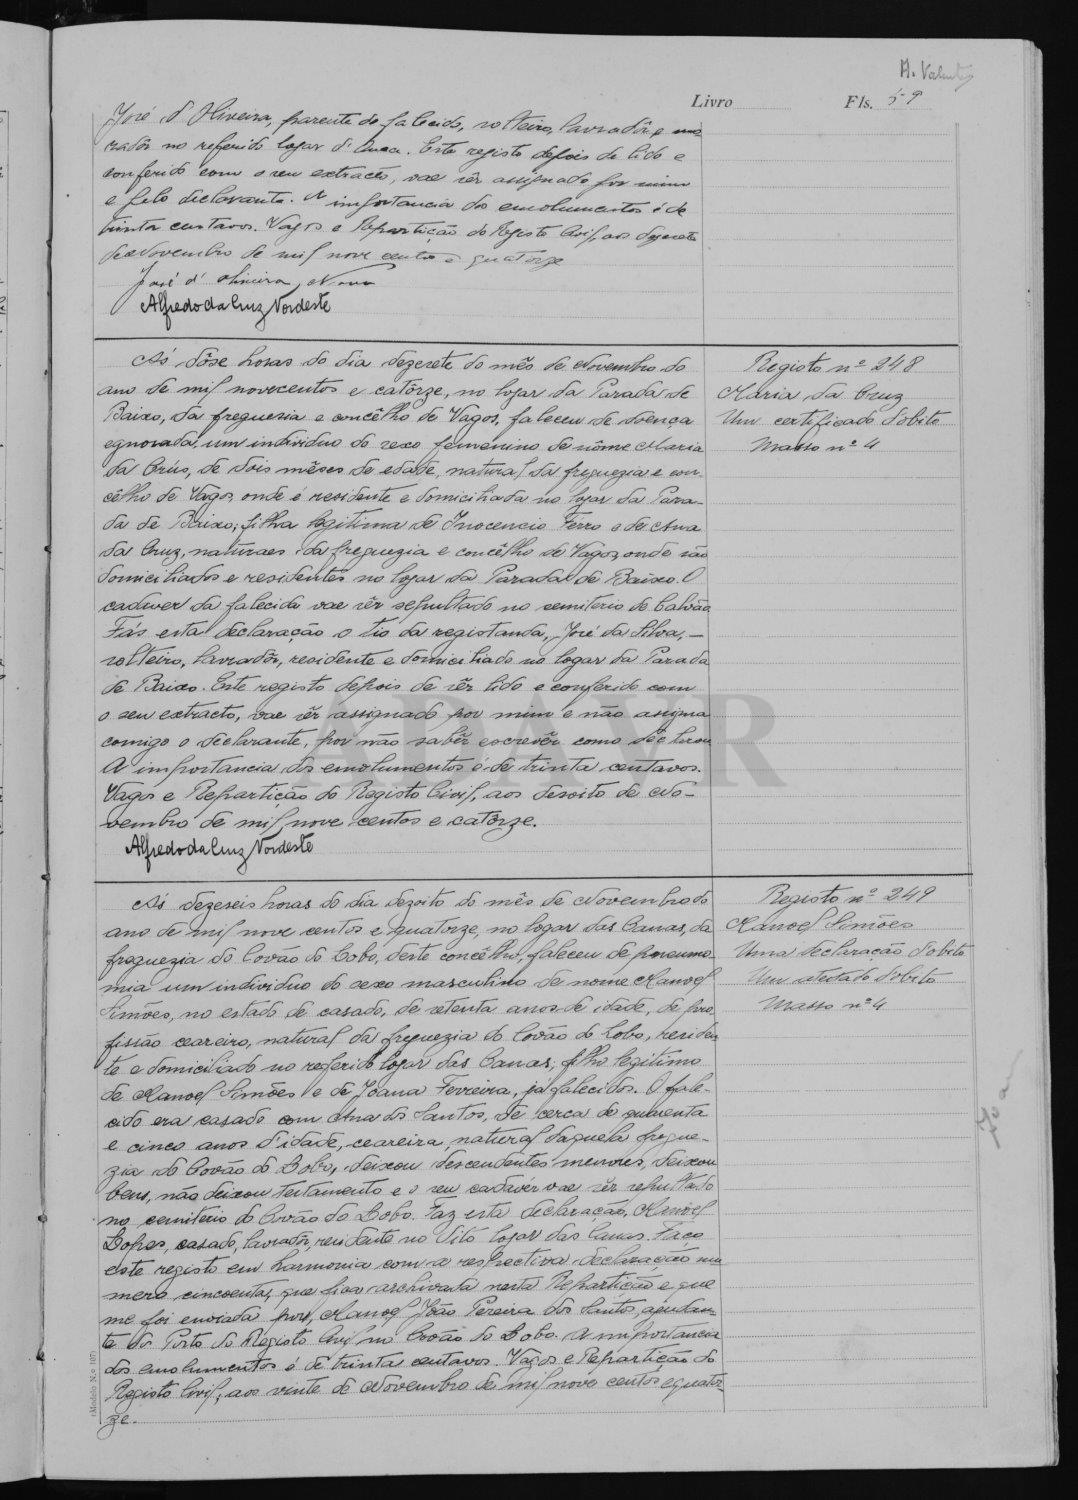 A. Valente
Livro Fls. 59
José d'Oliveira, parente do falecido, solteiro, lavradôr e mo
radôr no referido logar d'. Este registo depois de lido e
conferido com o seu extracto, vae sêr assignado por mim
e pelo declarante. A importancia dos emolumentos é de
trinta centavos. Vagos e Repartição do Registo Civil, aos dezasete
de Novembro de mil nove centos e quatorze
José d'Oliveira Novo
Alfredo da Cruz Nordeste
Ás dôse horas do dia dezesete do mês de Novembro do
ano de mil novecentos e catôrze, no logar da Parada de
Baixo, da freguesia e concêlho de Vagos, faleceu de doença
egnorada um individuo do sexo femenino de nôme Maria
da Crus, de dois mêses de edade, natural da freguezia e con-
cêlho de Vagos, onde é residente e domiciliada no logar da Para-
da de Baixo; filha legitima de Inocencio Ferro e de Ana
da Cruz, naturaes da freguezia e concêlho de Vagos, onde são
domiciliados e residentes no logar da Parada de Baixo. O
cadaver da falecida vae sêr sepultado no semiterio de Calvão
Fás esta declaração o tio da registanda, José da Silva, —
solteiro, lavradôr, residente e domiciliado no logar da Parada
de Baixo. Este registo depois de sêr lido e conferido com
o seu extracto, vae sêr assignado por mim e não asigna
comigo o declarante, por não sabêr escrevêr como declarou
A importancia dos emolumentos é de trinta centavos.
Vagos e Repartição do Registo Civil, aos desoito de No-
vembro de mil nove centos e catôrze.
Alfredo da Cruz Nordeste
Registo nº 248
Maria da Cruz
Um certificado d'obito
Masso nº 4
Ás dezeseis horas do dia dezoito do mês de Novembro do
ano de mil nove centos e quatorze, no logar das Canas, da
freguezia do Covão do Lobo, deste concêlho, faleceu de pneumo-
mia um individuo do sexo masculino de nome Manoel
Simões, no estado de casado, de setenta anos de idade, de pro
fissão ceareiro, natural da freguezia do Covão do Lobo, residen
te e domiciliado no referido logar das Canas; filho legitimo
de Manoel Simões e de Joana Ferreira, já falecidos. O fale-
cido era casado com Ana dos Santos, de cerca de quarenta
e cinco anos d'idade, ceareira, natural daquela fregue-
zia do Covão do Lobo, deixou descendentes menores, deixou
bens, não deixou testamento e o seu cadavér vae sêr sepultado
no cemiterio do Covão do Lobo. Faz esta declaração, Manoel
Lopes, casado, lavradôr, residente no dito logar das Canas. Faço
este registo em harmonia com a respectiva declaração nu
mero cincoenta, que fica archivada nesta Repartição e que
me foi enviada por, Manoel João Pereira dos Santos, ajudan-
te do Posto do Registo Civil no Covão do Lobo. A importancia
dos emolumentos é de trinta centavos. Vagos e Repartição do
Registo Civil, aos vinte de Novembro de mil nove centos e quator-
ze.
Registo nº 249
Manoel Simões
Uma declaração d'obito
Um atestado d'obito
Masso nº 4
(Modelo N.º 107)
ADAVR